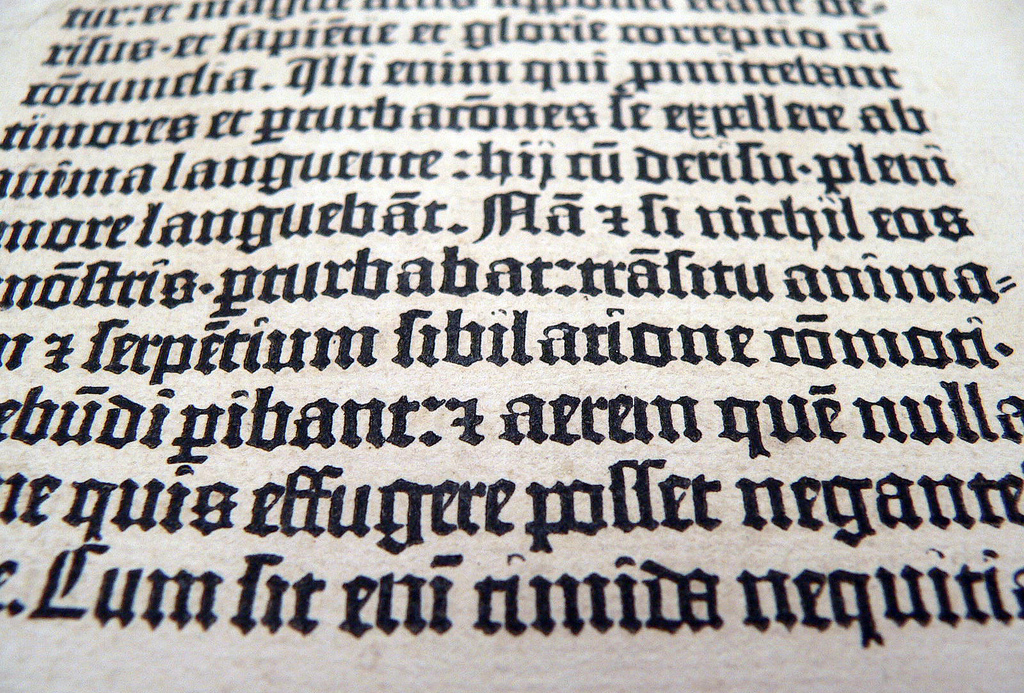 tur: et magice artis appōiti erant de-
risus· et sapiētie et glorie correptio cū
cōtumelia. Illi enim qui ꝓmittebant
timores et ꝑturbacōnes se expellere ab
anima languente: hij cū derisu· pleni
more languebāt. Nā ⁊ si nichil eos
mōstris· ꝑturbabat: trāsitu anima-
⁊ serpētium sibilatione cōmoti·
ebūdi ꝑibant: ⁊ aerem quē nulla
ne quis effugere posset negante
Cum sit eni̅ timida nequiti